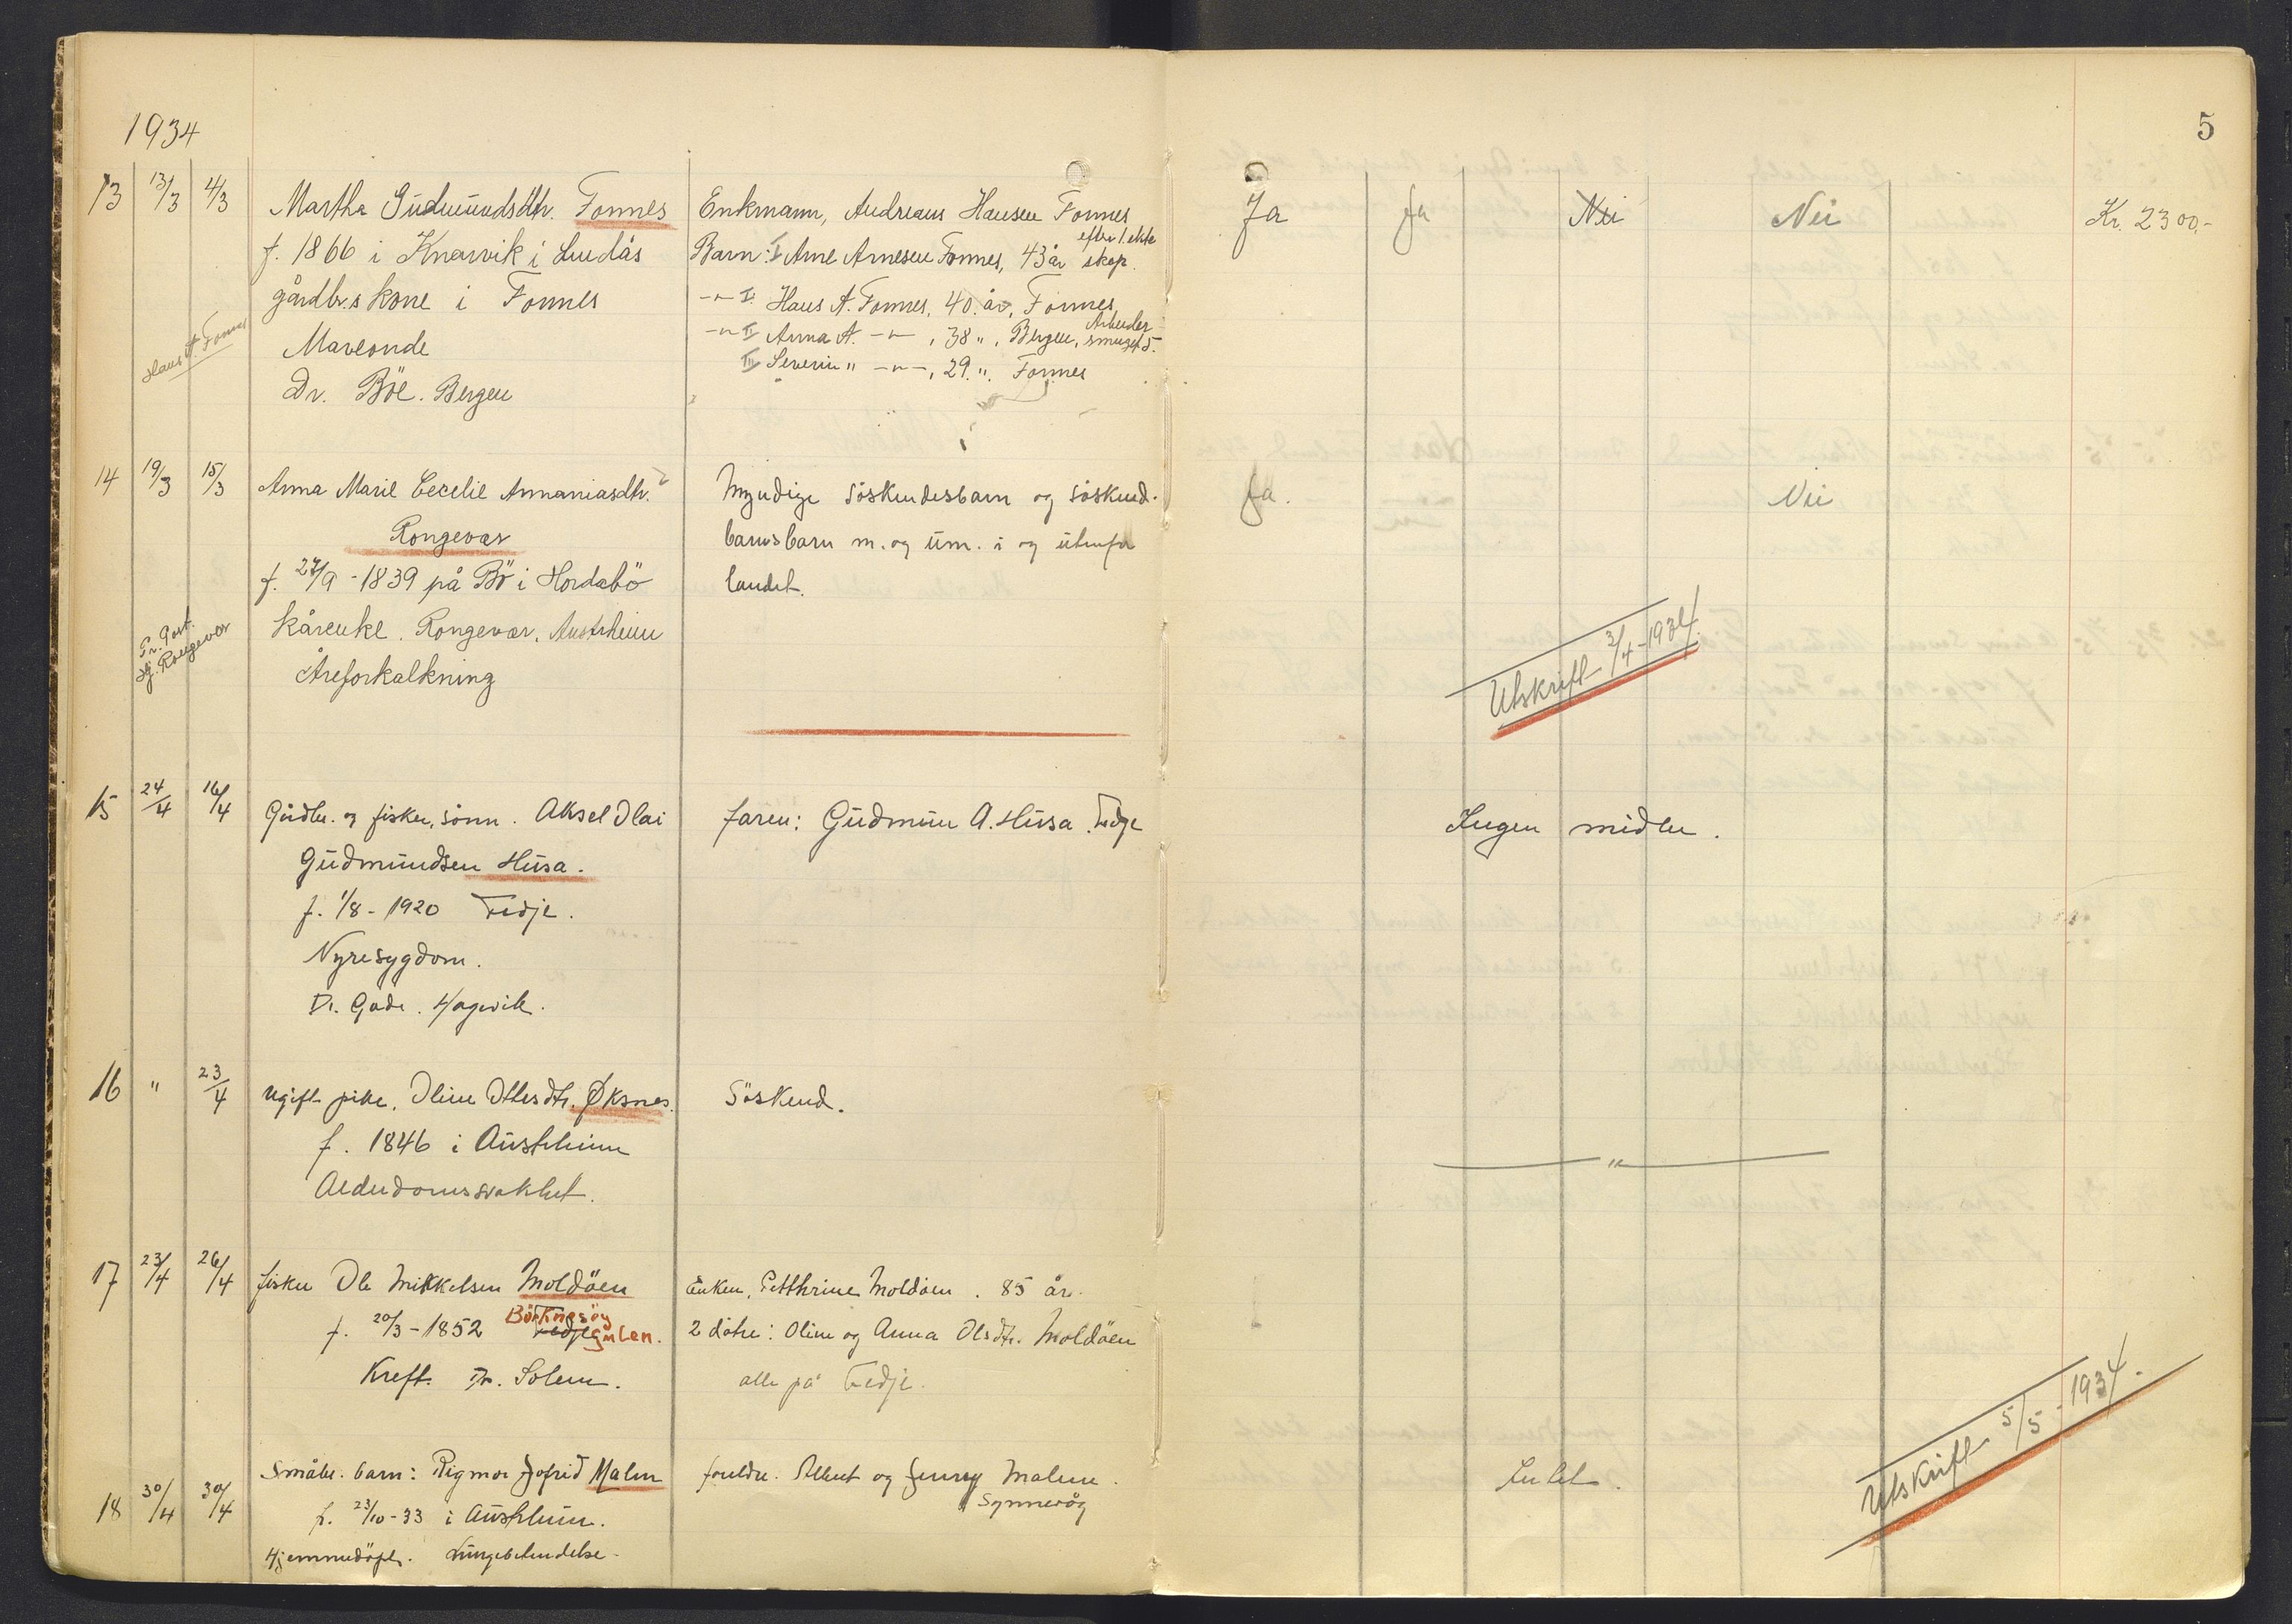 1934
5
13 13/3 4/3 Martha Gudmundsdtr. Fonnes
f. 1866 i Knarvik i Lindås
gårdbr.s kone i Fonnes
Mavesonde
Dr. Böe. Bergen
Hans A. Fonnes
Enkmann, Andreans Hansen Fonnes
Barn: I Arne Arnesen Fonnes, 43 år efter 1. ekte
skap.
-"- I. Hans A. Fonnes, 40. år, Fonnes
-"- II Anna A. -"- , 38 ", Bergen, Arbeider
smuget 5.
III Severin " -"-, 29. ". Fonnes
Ja Ja Nei Nei Kr. 2300,-
14 19/3 15/3 Anna Marie Cecelie Annaniasdtr.
Rongevær
f. 27/9 - 1839 på Bö i Hordabö
kårenke. Rongevær, Austrheim
Åreforkalkning
Pr. Post.
Sj. Rongevær
Myndige söskendesbarn og söskend-
barnsbarn m. og um. i og utenfor
landet.
Ja. Nei
Utskrift 3/4-1934.
15 24/4 16/4 Gårdbr. og fisker, sönn. Aksel Olai
Gudmundsen Husa.
f. 1/8 - 1920 Fedje.
Nyresygdom.
Dr. Gade. Hagevik.
faren: Gudmun A. Husa. Fedje
Ingen midler.
16 " 23/4 ugift pike. Oline Ottesdtr. Øksnes.
f. 1846 i Austrheim
Alderdomssvakhet.
Söskend.
"
17 23/4 26/4 fisker Ole Mikkelsen Moldöen
f. 20/3 - 1852 Fedje Börkngsöy
Gulen.
Kreft. Dr. Solem.
Enken, Petthrine Moldöen. 85 år.
2 dötre: Oline og Anna Olsdtr. Moldöen
alle på Fedje.
18 30/4 30/4 Småbr. barn: Rigmor Jofrid Malm
f. 23/10-33 i Austrheim.
Hjemmedöpt. Lungebetendelse.
foreldre. Albert og Jenny Malm.
Synnevåg
Intet.
Utskrift 5/5-1934.